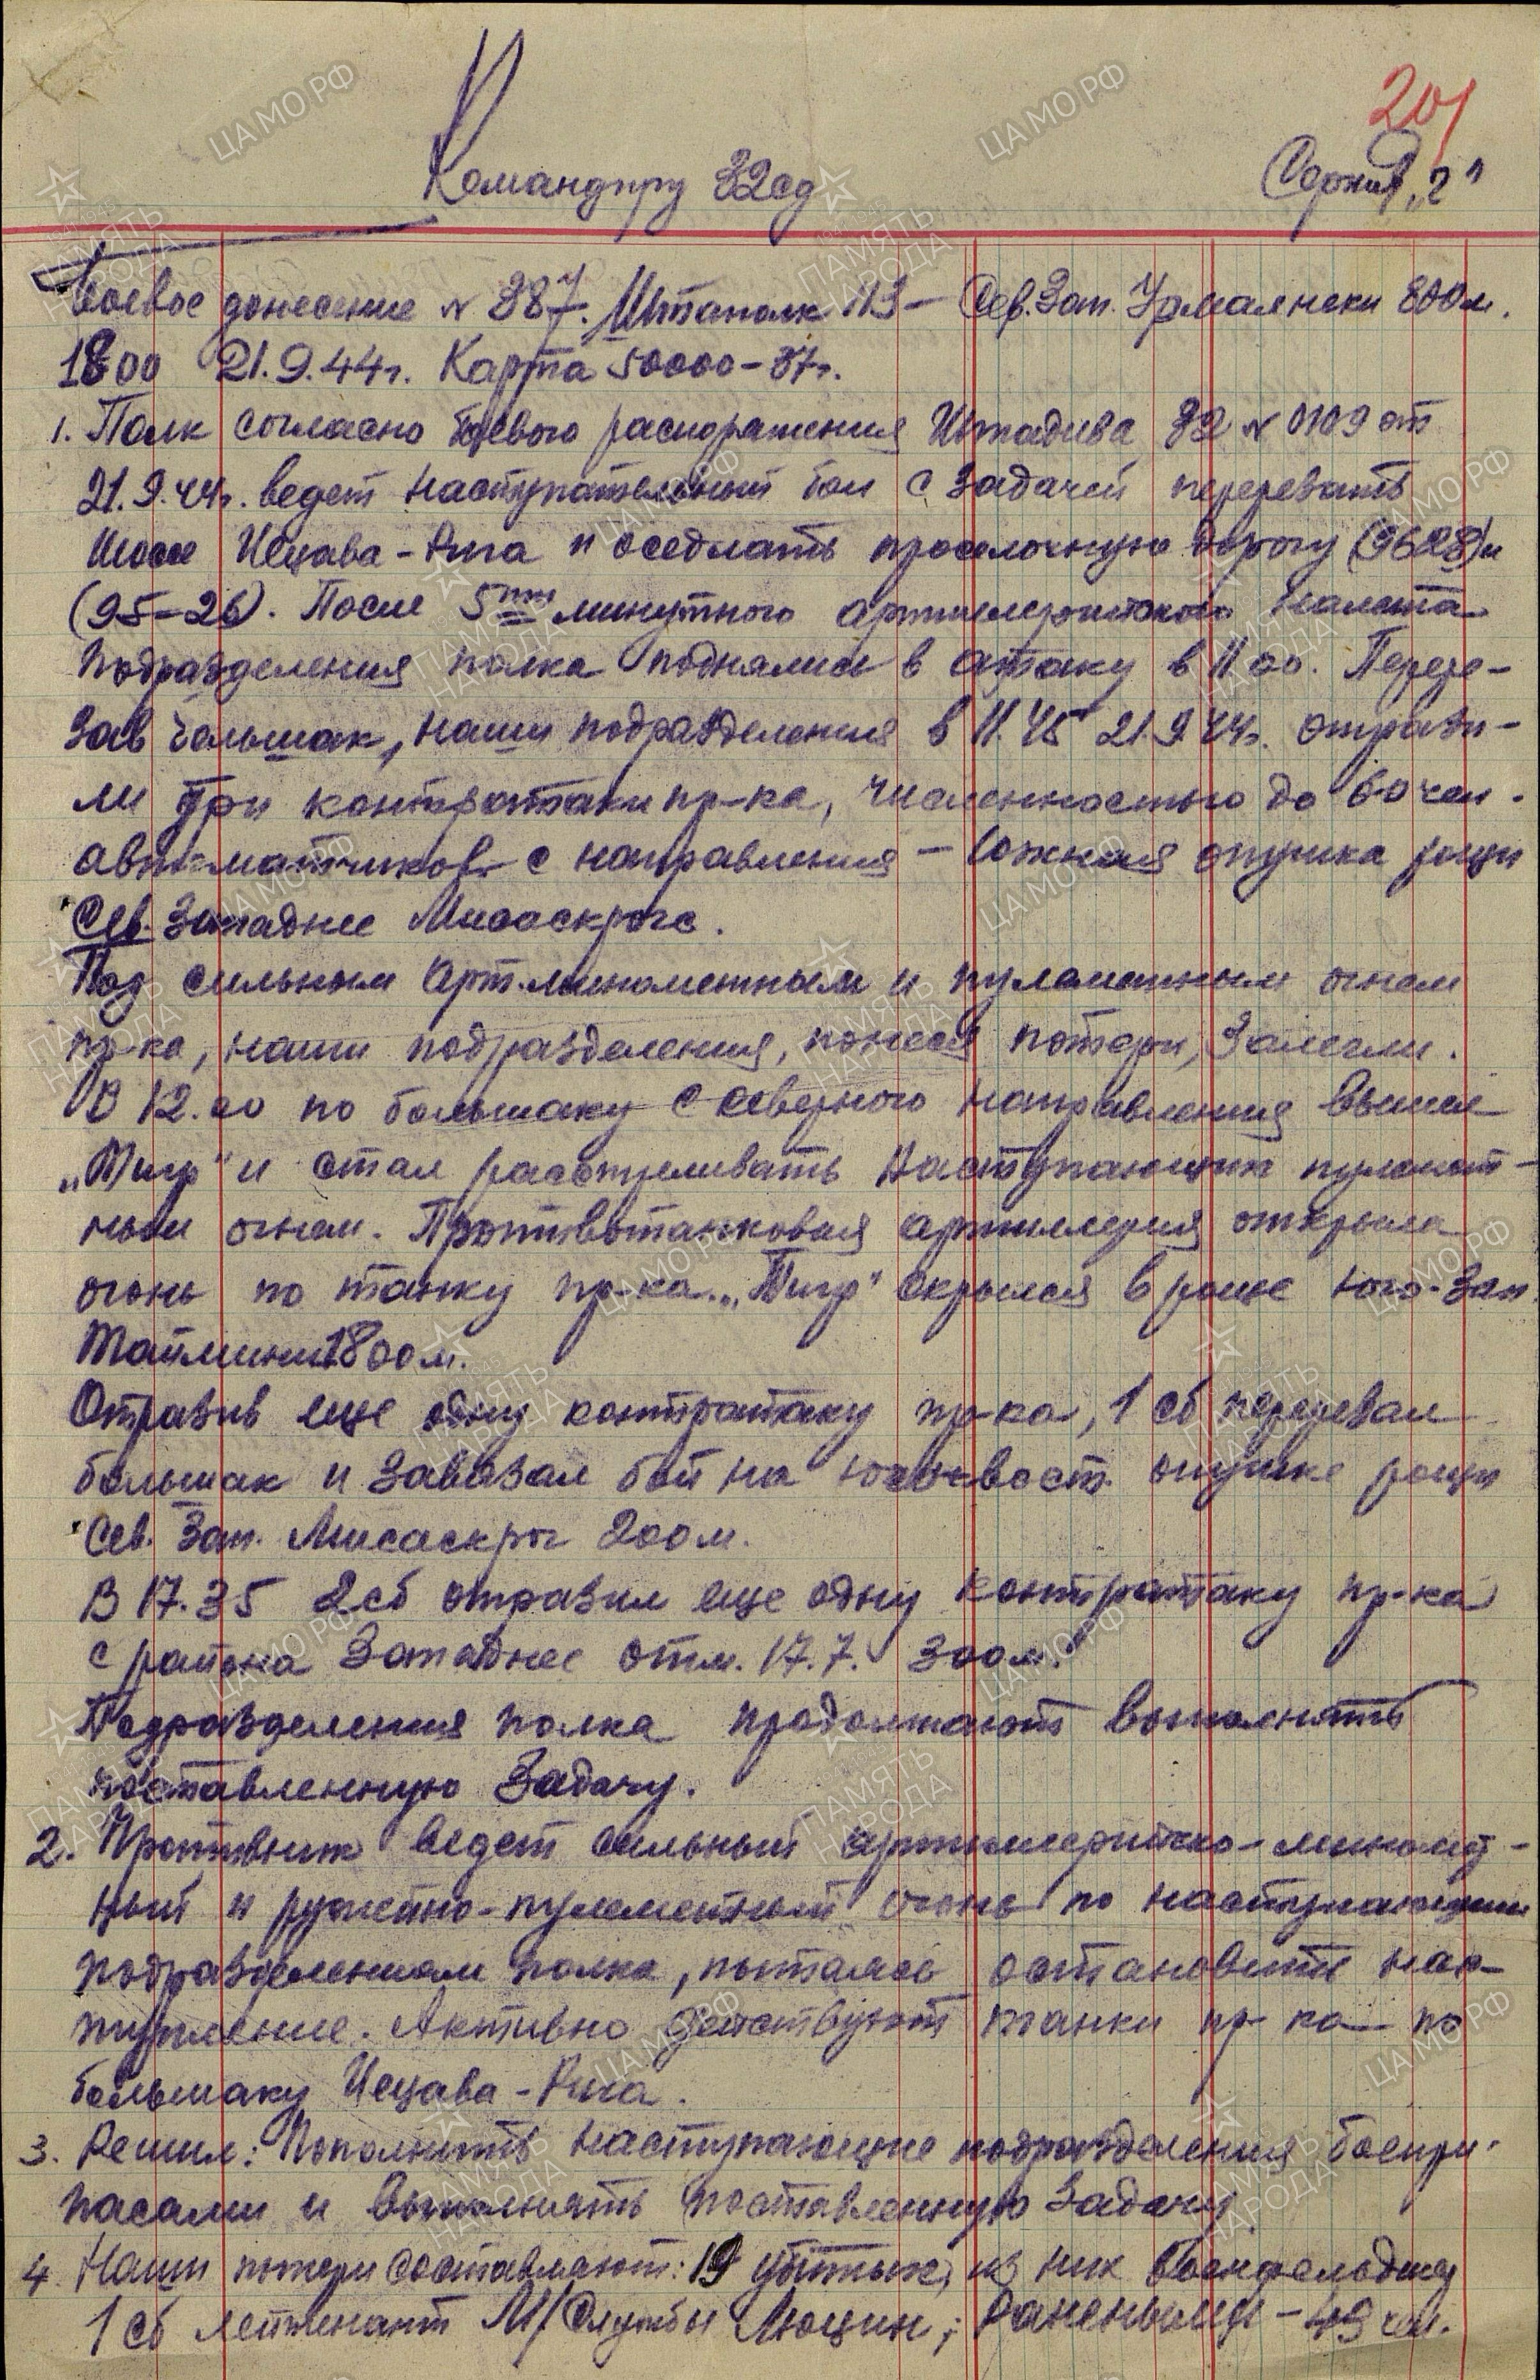 201
Командиру 32сд Серия „Г"
Боевое донесение № 387. Штаполк 113 – Сев. Зап. Урмалнеки 800 м.
18 00 21.9.44г. Карта 50000–37г.
1. Полк согласно боевого распоряжения Штадива 32 № 0109 от
21.9.44г. ведет наступательный бой с задачей перерезать
шоссе Иецава – Рига и оседлать проселочную дорогу (9628) и
(95–26). После 5ти минутного артиллерийского налета
подразделения полка поднялись в атаку в 11.00. Пере-
зав большак, наши подразделения в 11.45 21.9.44г. отрази-
ли три контратаки пр-ка, численностью до 60 чел.
автоматчиков с направления – южная опушка рощи
Сев. Западнее Мисаскрогс.
Под сильным арт. минометным и пулеметным огнем
пр-ка, наши подразделения, понеся потери, залегли.
В 12.00 по большаку с северного направления вышел
„Тигр" и стал расстреливать наступающих пулемет-
ным огнем. Противотанковая артиллерия открыла
огонь по танку пр-ка. „Тигр" скрылся в роще юго-зап.
800 м.
Отразив еще одну контратаку пр-ка, 1 сб перерезал
большак и завязал бой на юго-вост. опушке рощи
Сев. Зап. Мисаскрог 200 м.
В 17.35 2 сб отразил еще одну контратаку пр-ка
с района Западнее отм. 17.7. 300 м.
Подразделения полка продолжают выполнять
поставленную задачу.
2. Противник ведет сильный артиллерийско-миномет-
ный и ружейно-пулеметный огонь по наступающим
подразделениям полка, пытаясь остановить нас-
тупление. Активно действуют танки пр-ка по
большаку Иецава – Рига.
3. Решил: Пополнить наступающие подразделения боепри-
пасами и выполнять поставленную задачу.
4. Наши потери составляют: 19 убитых, из них военфельдшер
1 сб лейтенант М/Службы Люцин; раненными – 49 чел.
ЦАМО РФ
ПАМЯТЬ НАРОДА